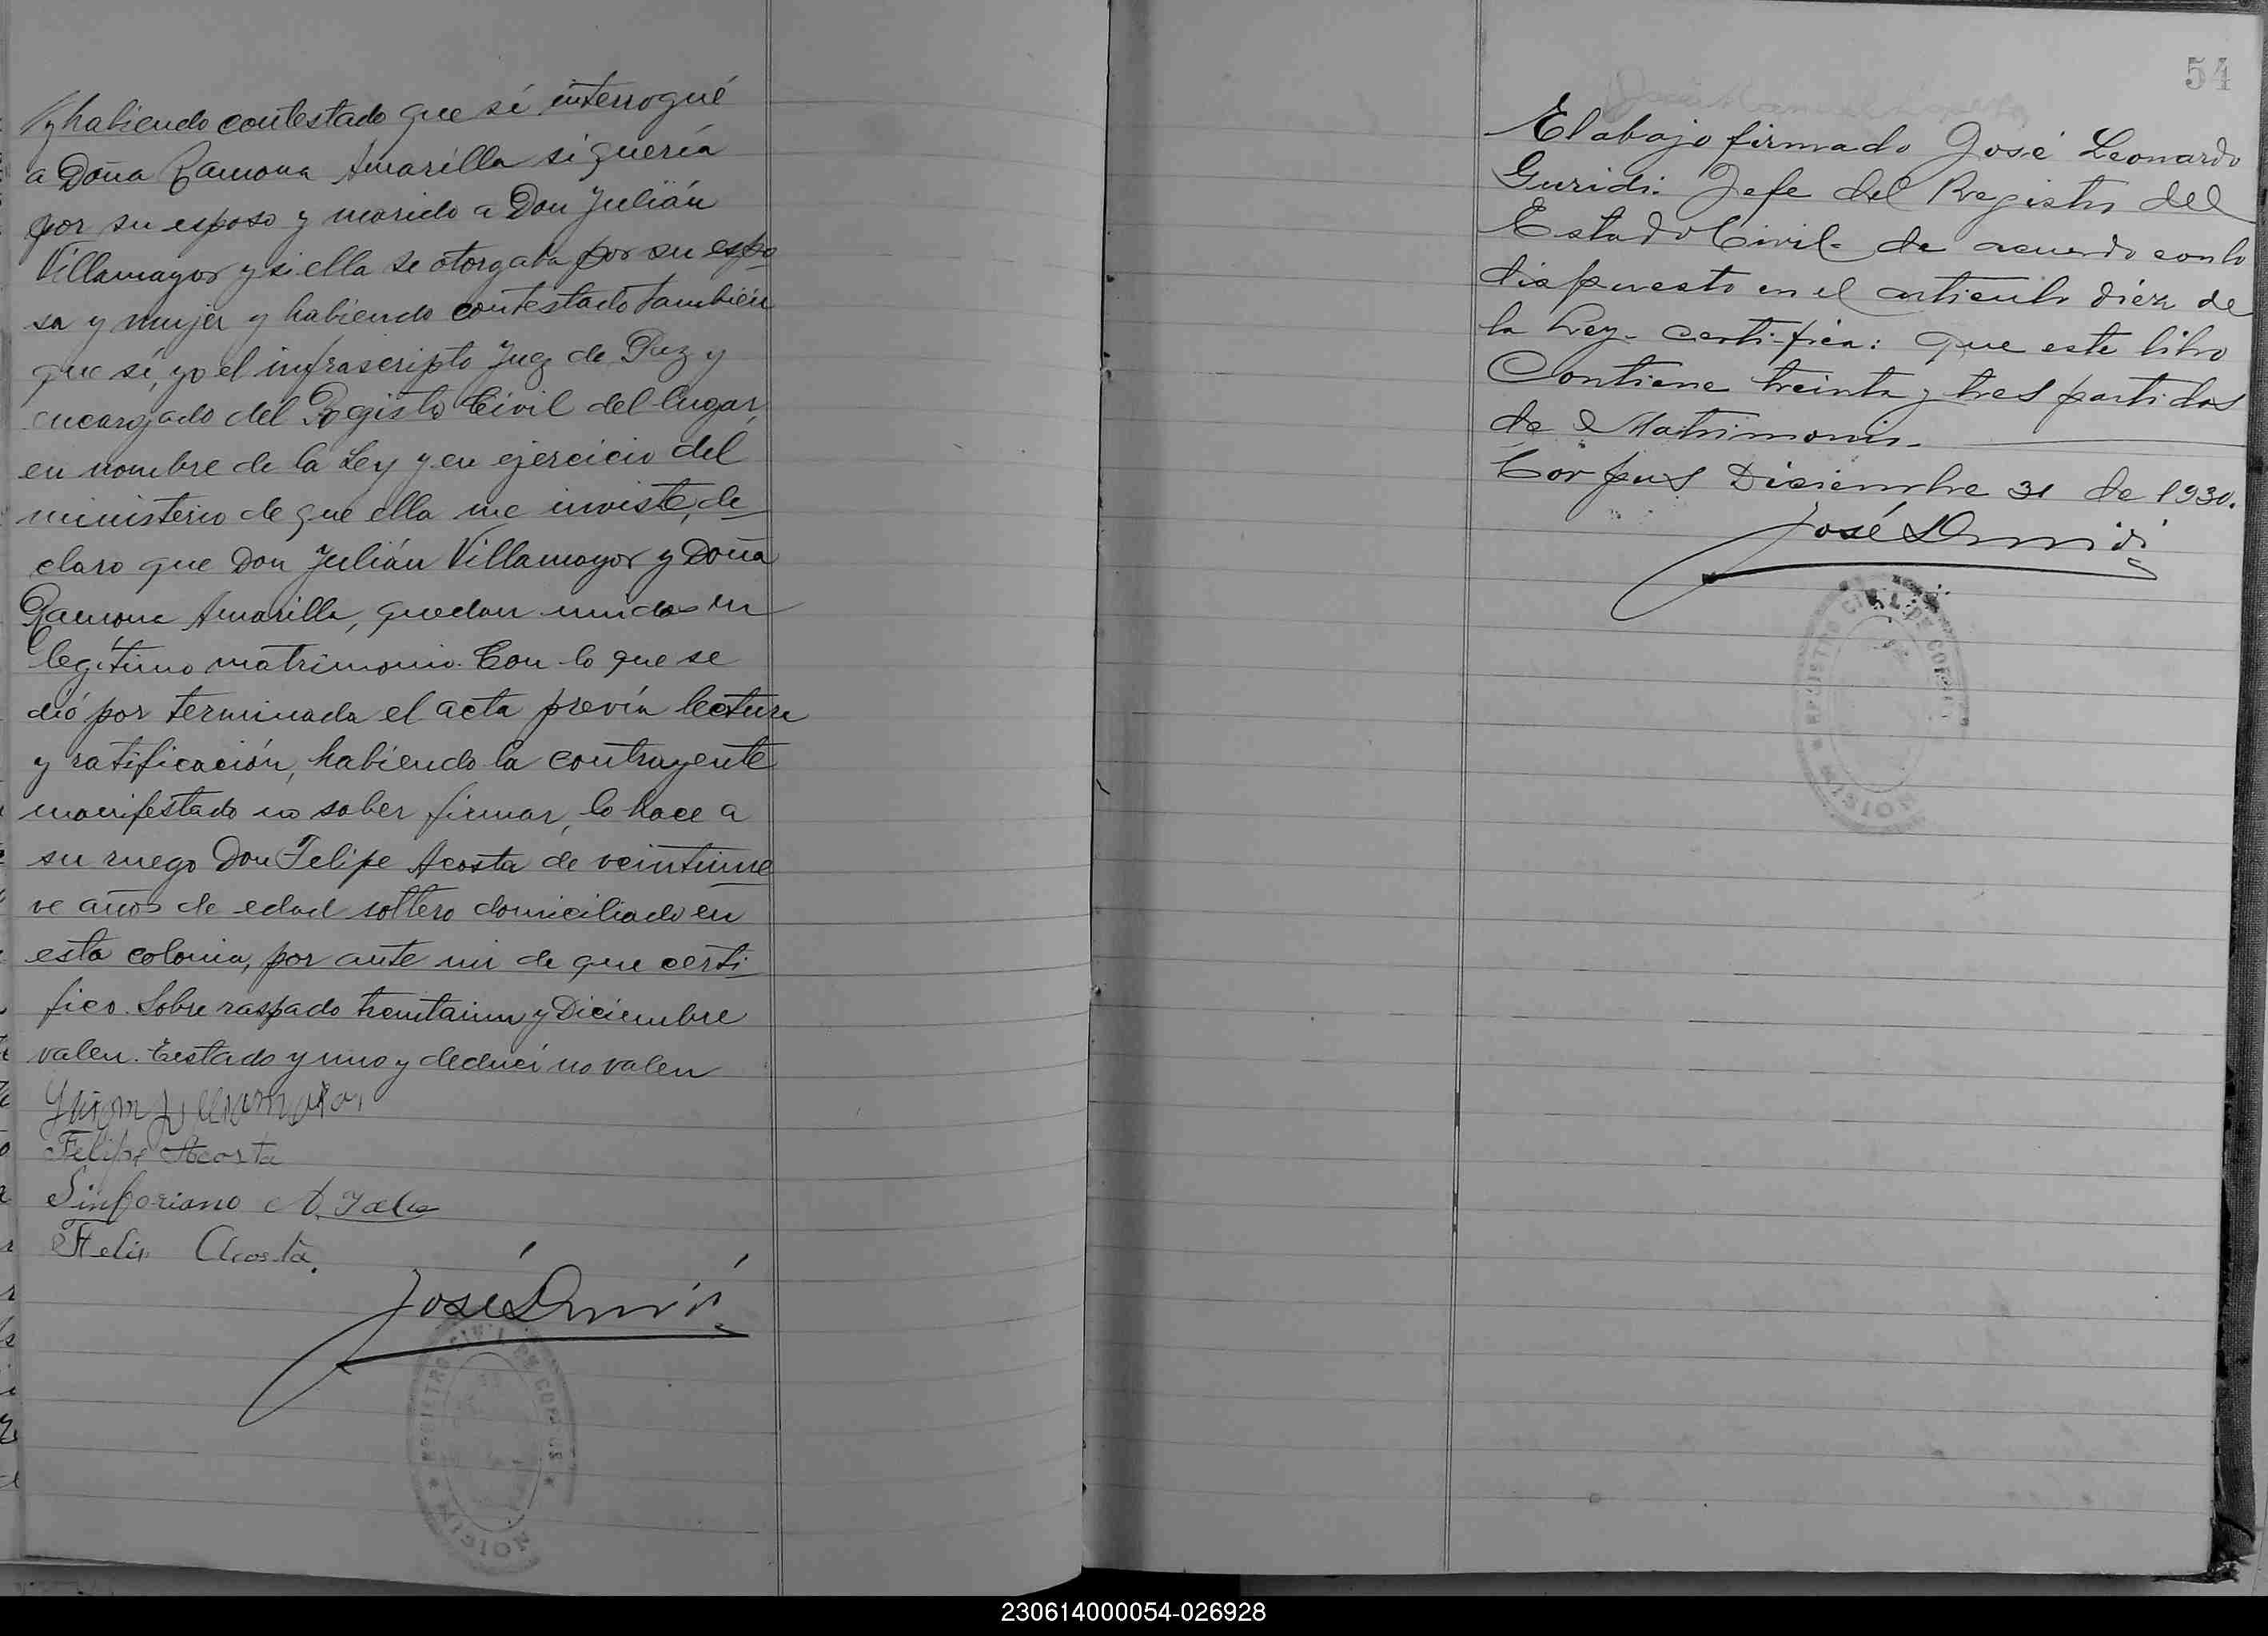 y habiendo contestado que sí interrogué
a Doña Ramona Amarilla si quería
por su esposo y marido a Don Julián
Villamayor y si ella se otorgaba por su espo
sa y mujer y habiendo contestado también
que sí, yo el infrascripto Juez de Paz y
encargado del Registro Civil del lugar,
en nombre de la Ley y en ejercicio del
ministerio de que ella me inviste, de
claro que Don Julián Villamayor y Doña
Ramona Amarilla, quedan unidos en
legítimo matrimonio. Con lo que se
dió por terminada el acta previa lectura
y ratificación, habiendo la contrayente
manifestado no saber firmar, lo hace a
su ruego Don Felipe Acosta de veintinue
ve años de edad soltero domiciliado en
esta colonia, por ante mi de que certi
fico. Sobre raspado y Diciembre
valen. Testado y uno y no valen
Felipe Acosta
Sinforiano
Felix Acosta.
José L Guridi
REGISTRO CIVIL DE CORPUS
54
El abajo firmado José Leonardo
Guridi. Jefe del Registro del
Estado Civil. de acuerdo con lo
dispuesto en el articulo diez de
la Ley. certifica: que este libro
Contiene treinta y tres partidas
de Matrimonio.
Corpus Diciembre 31 de 1930.
José L Guridi
REGISTRO CIVIL DE CORPUS
230614000054-026928